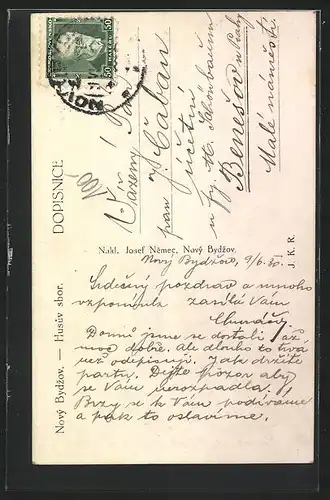 Nový Bydžov. — Husův sbor.
DOPISNICE
Nakl. Josef Němec, Nový Bydžov.
J. K. R.
50
50
100
Vážený Pán
pan J. Čaban
účetní
u fy A. Schönbaum
Benešov u Prahy
Malé náměstí
Nový Bydžov, 9/6.
Srdečný pozdrav a mnoho
vzpomínek zasílá Vám
Domů jsme se dostali až
moc dobře. Ale dlouho to trvá
než odepisuji. Jak držíte
partu. Dejte pozor aby
se Vám nerozpadla.
Brzy se k Vám podíváme
a pak to oslavíme.